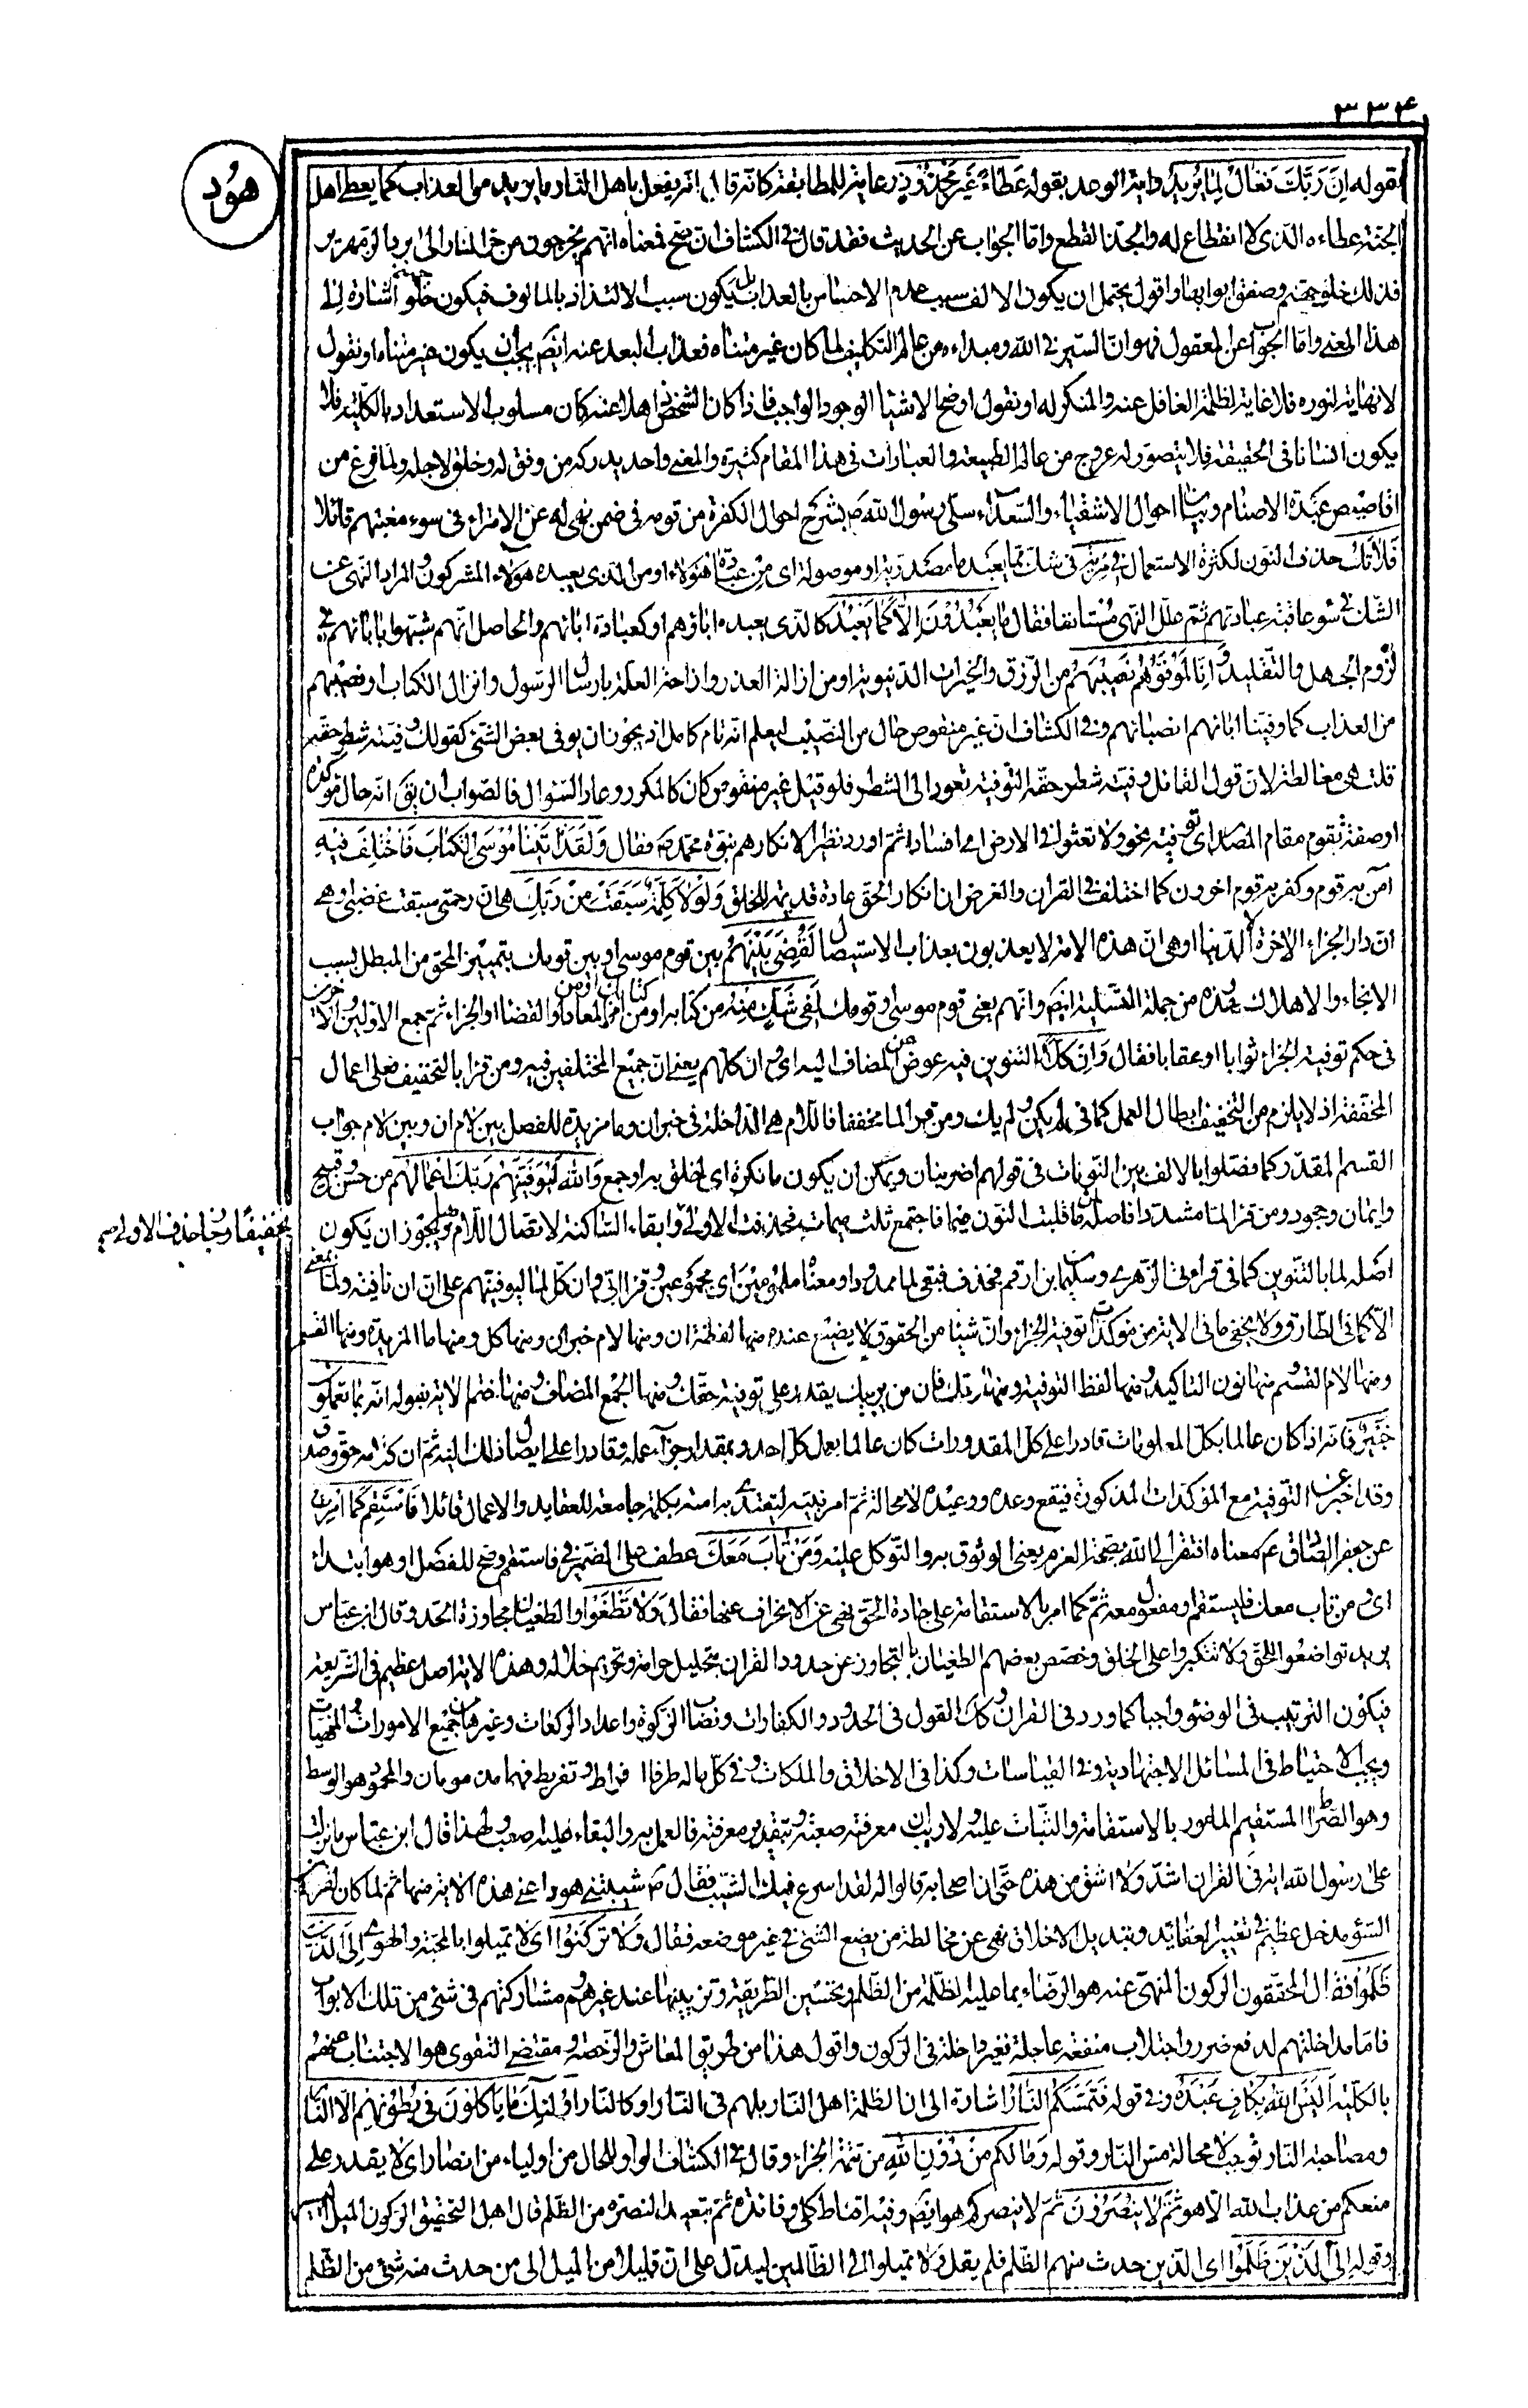 ٣٣٤
هود
بقوله ان ربك فعال لما يريد وآية الوعد بقوله عطاء غير مجذوذ رعاية للمطابقة كانه قال انه يفعل باهل النار ما يريد من العذاب كما يعطي اهل
الجنة عطاءه الذي لا انقطاع له والجذ القطع واما الجواب عن الحديث فقد قال في الكشاف ان صح فمعناه انهم يخرجون من حر النار الى برد الزمهرير
فذلك خلو جهنم وصفق ابوابها واقول يحتمل ان يكون الالف سبب عدم الاحساس بالعذاب بل يكون سبب الالتذاذ بالمالوف فيكون خلو جهنم اشارة الى
هذا المعنى واما الجواب عن المعقول فهو ان السير في الله ومبداءه من عالم التكليف لما كان غير متناه فعذاب البعد عنه ايضا يجب ان يكون غير متناه او نقول
لا نهاية لنوره فلا غاية لظلمة الغافل عنه والمنكر له او نقول اوضح الاشياء الوجود الواجب فاذا كان الشخص ذاهلا عنه كان مسلوب الاستعداد بالكلية فلا
يكون انسانا في الحقيقة فلا يتصور له عروج من عالم الطبيعة والعبارات في هذا المقام كثيرة والمعنى واحد يدركه من وفق له وخلق لاجله ولما فرغ من
اقاصيص عبدة الاصنام وبيان احوال الاشقياء والسعداء سلى رسول الله ص بشرح احوال الكفرة من قومه في ضمن نهى له عن الامتراء في سوء مغبتهم قائلا
فلا تك حذف النون لكثرة الاستعمال في مرية في شك مما يعبد ما مصدرية او موصولة اي من عبادة هؤلاء او من الذي يعبده هؤلاء المشركون والمراد النهي عن
الشك في سوء عاقبة عبادتهم ثم علل النهي مستانفا فقال ما يعبدون الا كما يعبد كالذي يعبده اباؤهم او كعبادة ابائهم والحاصل انهم شبهوا بابائهم في
لزوم الجهل والتقليد وانا لموفوهم نصيبهم من الرزق والخيرات الدنيوية او من ازالة العذر وازاحة العلة بارسال الرسول وانزال الكتاب او نصيبهم
من العذاب كما وفينا اباءهم انصباءهم وفي الكشاف ان غير منقوص حال من النصيب ليعلم انه تام كامل اذ يجوز ان يوفى بعض الشئ كقولك وفيته شطر حقه
قلت هي مغالطة لان قول القائل وفيته شطر حقه التوفية تعود الى الشطر فلو قيل غير منقوص كان كالمكرر وعاد السؤال فالصواب ان يق انه حال مؤكدة
او صفة تقوم مقام المصدر اي توفية نحو ولا تعثوا في الارض اي افسادا ثم اورد نظير الانكارهم نبوة محمد ص فقال ولقد اتينا موسى الكتاب فاختلف فيه
آمن به قوم وكفر به قوم اخرون كما اختلف في القران والغرض ان انكار الحق عادة قديمة للخلق ولولا كلمة سبقت من ربك هي ان رحمتي سبقت غضبي او هي
ان دار الجزاء الاخرة لا الدنيا او هي ان هذه الامة لا يعذبون بعذاب الاستيصال لقضي بينهم بين قوم موسى او بين قومك بتمييز المحق من المبطل بسبب
الانجاء والاهلاك وهذه من جملة التسلية ايضا وانهم يعني قوم موسى او قومك لفي شك منه من كتابه او من كتابك او من امر المعاد او القضاء او الجزاء ثم جمع الاولين والاخرين
في حكم توفية الجزاء ثوابا او عقابا فقال وان كلا التنوين فيه عوض من المضاف اليه اي وان كلهم يعني ان جميع المختلفين فيه ومن قرا بالتخفيف فعلى اعمال
المخففة اذ لا يلزم من التخفيف ابطال العمل كما في لم يكن ولم يك ومن قرا لما مخففا فاللام هي الداخلة في خبر ان وما مزيدة للفصل بين لام ان وبين لام جواب
القسم المقدر كما فصلوا بالالف بين النونات في قولهم اضربنان ويمكن ان يكون ما نكرة اي لخلق او جمع والله ليوفينهم ربك اعمالهم من حسن وقبيح
وايمان وجحود ومن قرا لما مشددا فاصله لمن ما قلبت النون ميما فاجتمع ثلث ميمات فحذفت الاولى وابقاء الساكنة لاتصال اللام بها ويجوز ان يكون
تخفيفا وجاز حذف الاولى
اصله لما بالتنوين كما في قراءة الزهري وسليمان ابن ارقم فحذف فبقي لما ممدودا ومعناه ملمومين اي مجموعين وقرا ابي وان كل لما ليوفينهم على ان ان نافية ولما بمعنى
الا كما في الطارق ولا يخفى ما في الاية من مؤكدات توفية الجزاء وان شيئا من الحقوق لا يضيع عنده منها لفظة ان ومنها لام خبر ان ومنها كل ومنها ما المزيدة ومنها القسم
ومنها لام القسم ومنها نون التاكيد ومنها لفظ التوفية ومنها ربك فان من يربيك يقدر على توفية حقك ومنها الجمع المضاف ومنها ختم الاية بقوله انه بما تعملون
خبير فانه اذا كان عالما بكل المعلومات قادرا على كل المقدورات كان عالما بعمل كل احد وبمقدار جزاء عمله وقادرا على ايصال ذلك اليه ثم ان كلامه حق وصدق
وقد اخبر عن التوفية مع المؤكدات المذكورة فيقع وعده ووعيده لا محالة ثم امر نبيه ليقتدي به امته بكلمة جامعة للعقايد والاعمال قائلا فاستقم كما امرت
عن جعفر الصادق ع معناه افتقر الى الله بصحة العزم يعني الوثوق به والتوكل عليه ومن تاب معك عطف على الضمير في فاستقم وصح للفصل او هو ابتداء
اي ومن تاب معك فليستقم او مفعول معه ثم كما امر بالاستقامة على جادة الحق نهى عن الانحراف عنها فقال ولا تطغوا والطغيان مجاوزة الحد وقال ابن عباس
يريد تواضعوا للحق ولا تتكبروا على الخلق وخصص بعضهم الطغيان بالتجاوز عن حدود القران بتحليل حرامه وتحريم حلاله وهذه الاية اصل عظيم في الشريعة
فيكون الترتيب في الوضوء واجبا كما ورد في القران وكذا القول في الحدود والكفارات ونصاب الزكوة واعداد الركعات وغيرها من جميع المامورات والمنهيات
ويجب الاحتياط في المسائل الاجتهادية وفي القياسات وكذا في الاخلاق والملكات وفي كل ما له طرفا افراط وتفريط فهما مذمومان والمحمود هو الوسط
وهو الصراط المستقيم المامور بالاستقامة والثبات عليه ولا ريب ان معرفته صعبة وبتقدير معرفته فالعمل به والبقاء عليه صعب ولهذا قال ابن عباس ما نزلت
على رسول الله اية في القران اشد ولا اشق من هذه حتى ان اصحابه قالوا له لقد اسرع فيك الشيب فقال ص شيبتني هود اعني هذه الاية منها ثم لما كان لقرين
السوء مدخل عظيم في تغيير العقايد وتبديل الاخلاق نهى عن مخالطة من يضع الشئ في غير موضعه فقال ولا تركنوا اي لا تميلوا بالمحبة والهوى الى الذين
ظلموا فقال المحققون الركون المنهي عنه هو الرضاء بما عليه الظلمة من الظلم وتحسين الطريقة وتزيينها عند غيرهم ومشاركتهم في شئ من تلك الابواب
فاما مداخلتهم لدفع ضرر واجتلاب منفعة عاجلة فغير داخلة في الركون واقول هذا من طريق المعاش والرخصة ومقتضى التقوى هو الاجتناب عنهم
بالكلية اليس الله بكاف عبده وفي قوله فتمسكم النار اشارة الى ان الظلمة اهل النار بل هم في النار او كالنار اولئك ما ياكلون في بطونهم الا النار
ومصاحبة النار توجب لا محالة مس النار وقوله وما لكم من دون الله من تتمة الجزاء وقال في الكشاف الواو للحال من اولياء من انصار اي لا يقدر على
منعكم من عذاب الله الا هو ثم لا تنصرون ثم لا ينصركم هو ايضا وفيه اقناط كلي وفائدة ثم تبعيد النصرة من الظلم قال اهل التحقيق الركون الميل
وقوله الى الذين ظلموا اي الذين حدث منهم الظلم فلم يقل ولا تميلوا الى الظالمين ليدل على ان قليلا من الميل الى من حدث منه شئ من الظلم